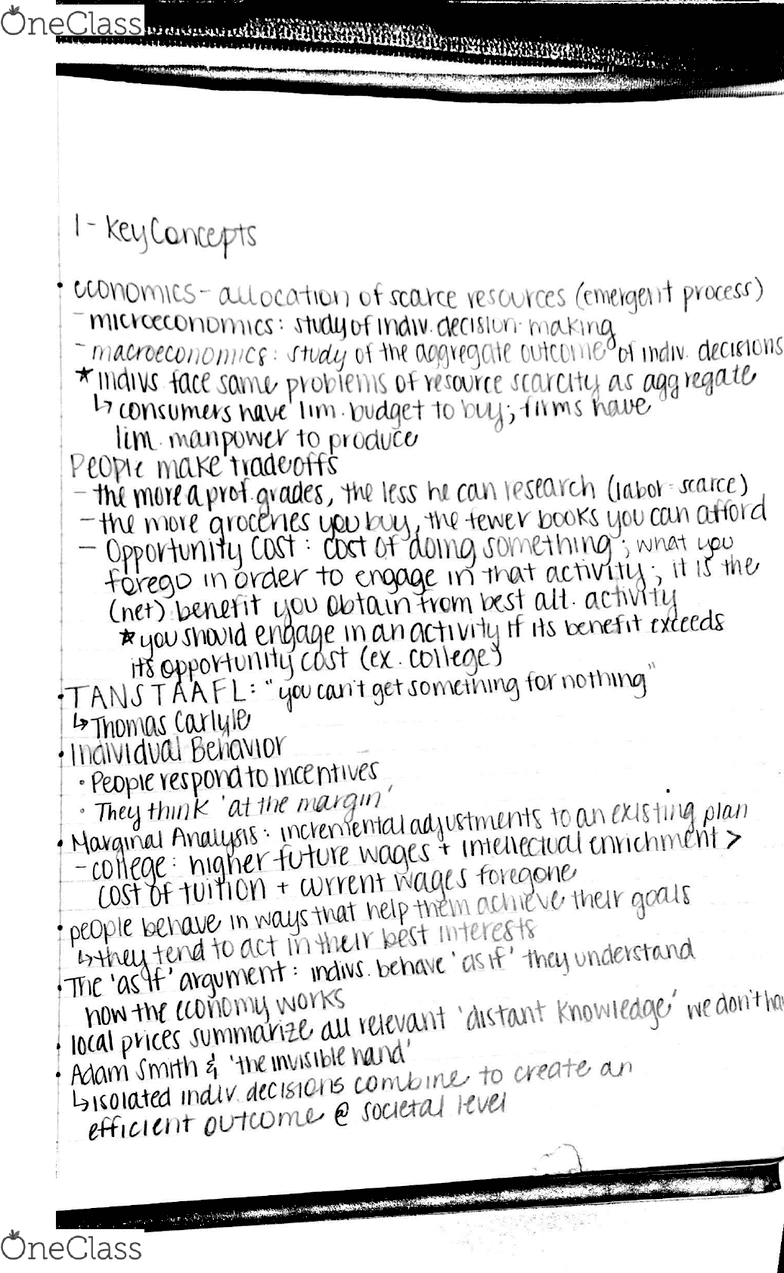 OneClass
1 - Key Concepts
• economics - allocation of scarce resources (emergent process)
- microeconomics: study of indiv. decision-making
- macroeconomics: study of the aggregate outcome of indiv. decisions
* indivs face same problems of resource scarcity as aggregate
↳ consumers have lim. budget to buy; firms have
lim. manpower to produce
People make tradeoffs
- the more a prof. grades, the less he can research (labor-scarce)
- the more groceries you buy, the fewer books you can afford
- Opportunity Cost: cost of doing something; what you
forego in order to engage in that activity; it is the
(net) benefit you obtain from best alt. activity
* you should engage in an activity if its benefit exceeds
its opportunity cost (ex. college)
• TANSTAAFL: "you can't get something for nothing"
↳ Thomas Carlyle
• Individual Behavior
◦ People respond to incentives
◦ They think 'at the margin'
• Marginal Analysis: incremental adjustments to an existing plan
- college: higher future wages + intellectual enrichment >
cost of tuition + current wages foregone
• people behave in ways that help them achieve their goals
↳ they tend to act in their best interests
• The 'as if' argument: indivs. behave 'as if' they understand
how the economy works
• local prices summarize all relevant 'distant knowledge' we don't ha
• Adam Smith & 'the invisible hand'
↳ isolated indiv. decisions combine to create an
efficient outcome @ societal level
OneClass